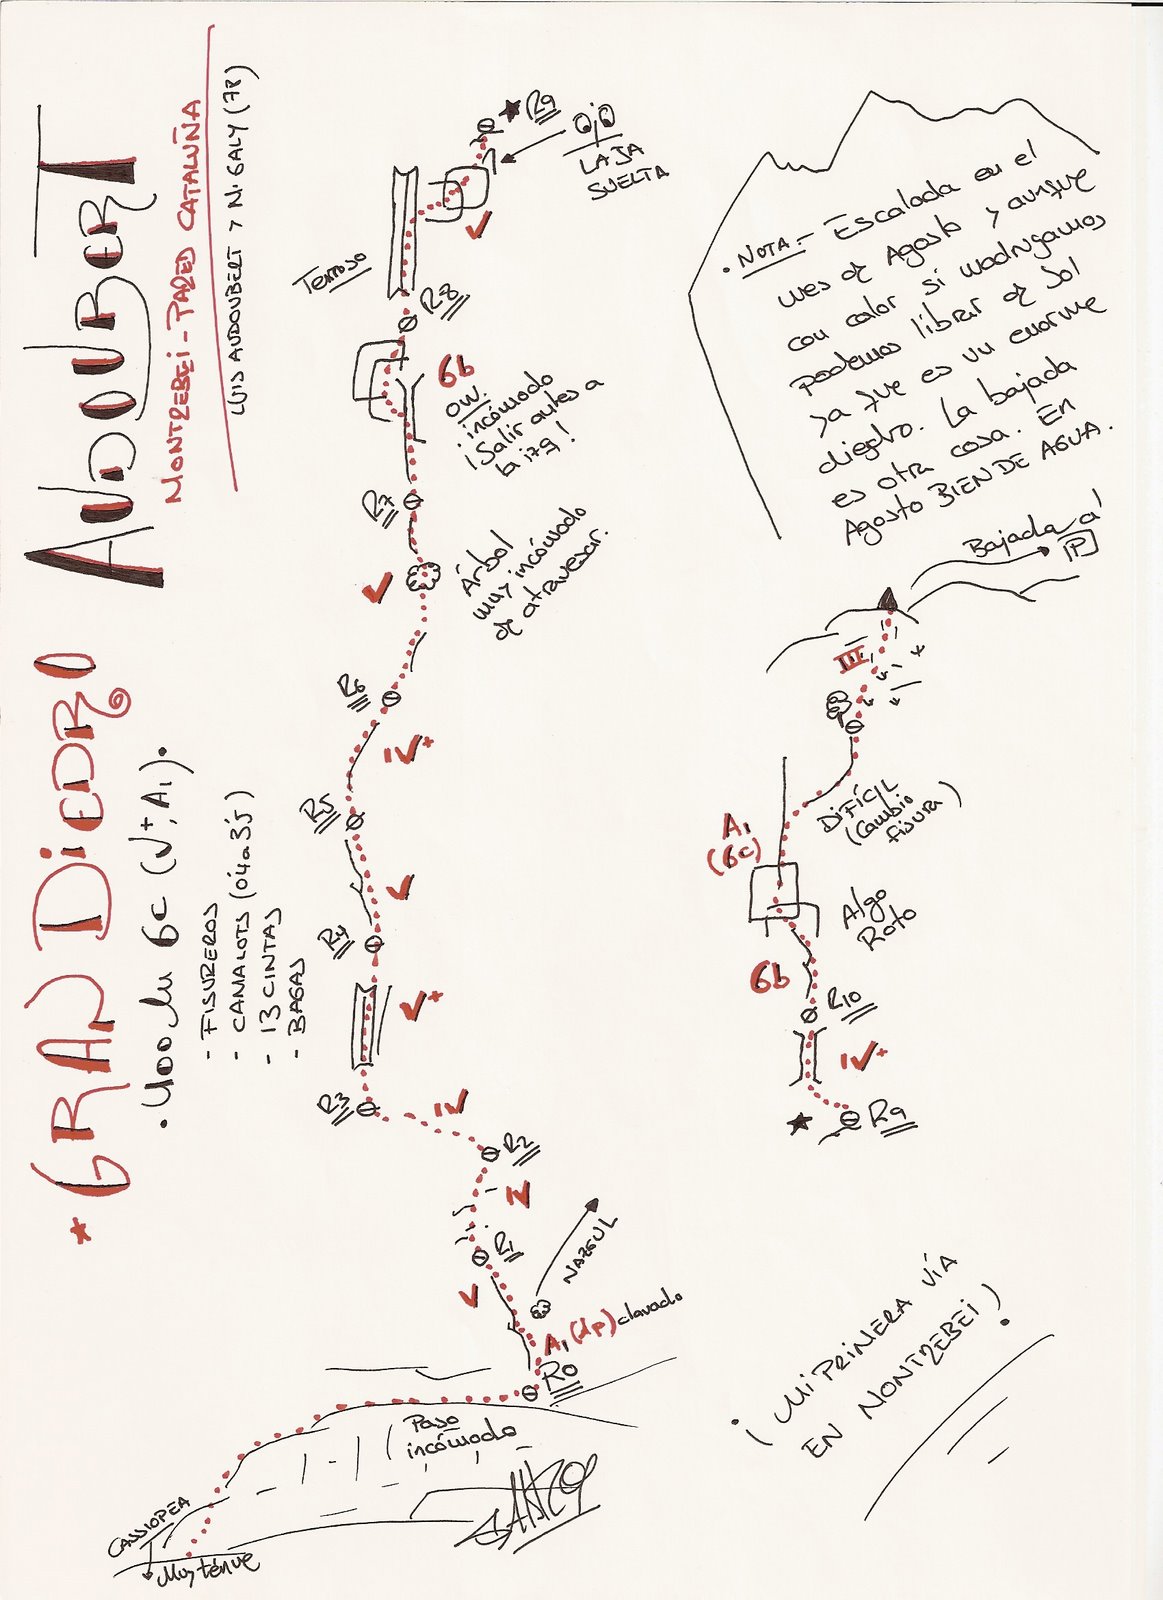 * GRAN DIEDRO AUDOUBERT
MONTREBEI - PARED CATALUÑA
LUIS AUDOUBERT Y M. GALY (78)
• 400 m 6c (V+, A1).
- FISUREROS
- CAMALOTS (0'4 a 3'5)
- 13 CINTAS
- BAGAS
★ R9
OJO
LAJA
SUELTA
V
Terroso
R8
6b
OW.
incómodo
¡Salir antes a
la izq!
R7
Árbol
muy incómodo
de atravesar.
V
R6
IV+
R5
V
R4
V+
R3
IV
R2
IV
R1
V
NAZGUL
A1 (dp) clavado
R0
Paso
incómodo
CASSIOPEA
Muy ténue
• NOTA.- Escalada en el
mes de Agosto y aunque
con calor si madrugamos
podemos librar de sol
ya que es un enorme
diedro. La bajada
es otra cosa. En
Agosto BIEN DE AGUA.
Bajada al
P
III
DIFÍCIL
(Cambio
fisura)
A1
(6c)
Algo
Roto
6b
R10
IV+
★ R9
¡MI PRIMERA VÍA
EN MONTREBEI!